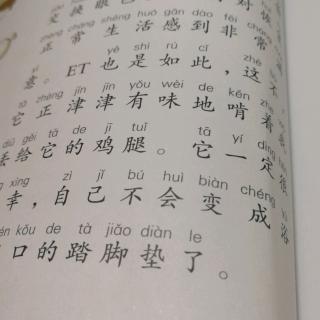 交换眼
zhèng cháng shēng huó gǎn dào fēi cháng
正常生活感到非常
yě shì rú cǐ zhè
意。ET也是如此，这不
zhèng jīn jīn yǒu wèi de kěn zhe
它正津津有味地啃着
diū gěi tā de jī tuǐ tā yí dìng
丢给它的鸡腿。它一定很
xìng zì jǐ bú huì biàn chéng yù
幸，自己不会变成浴
kǒu de tà jiǎo diàn le
口的踏脚垫了。